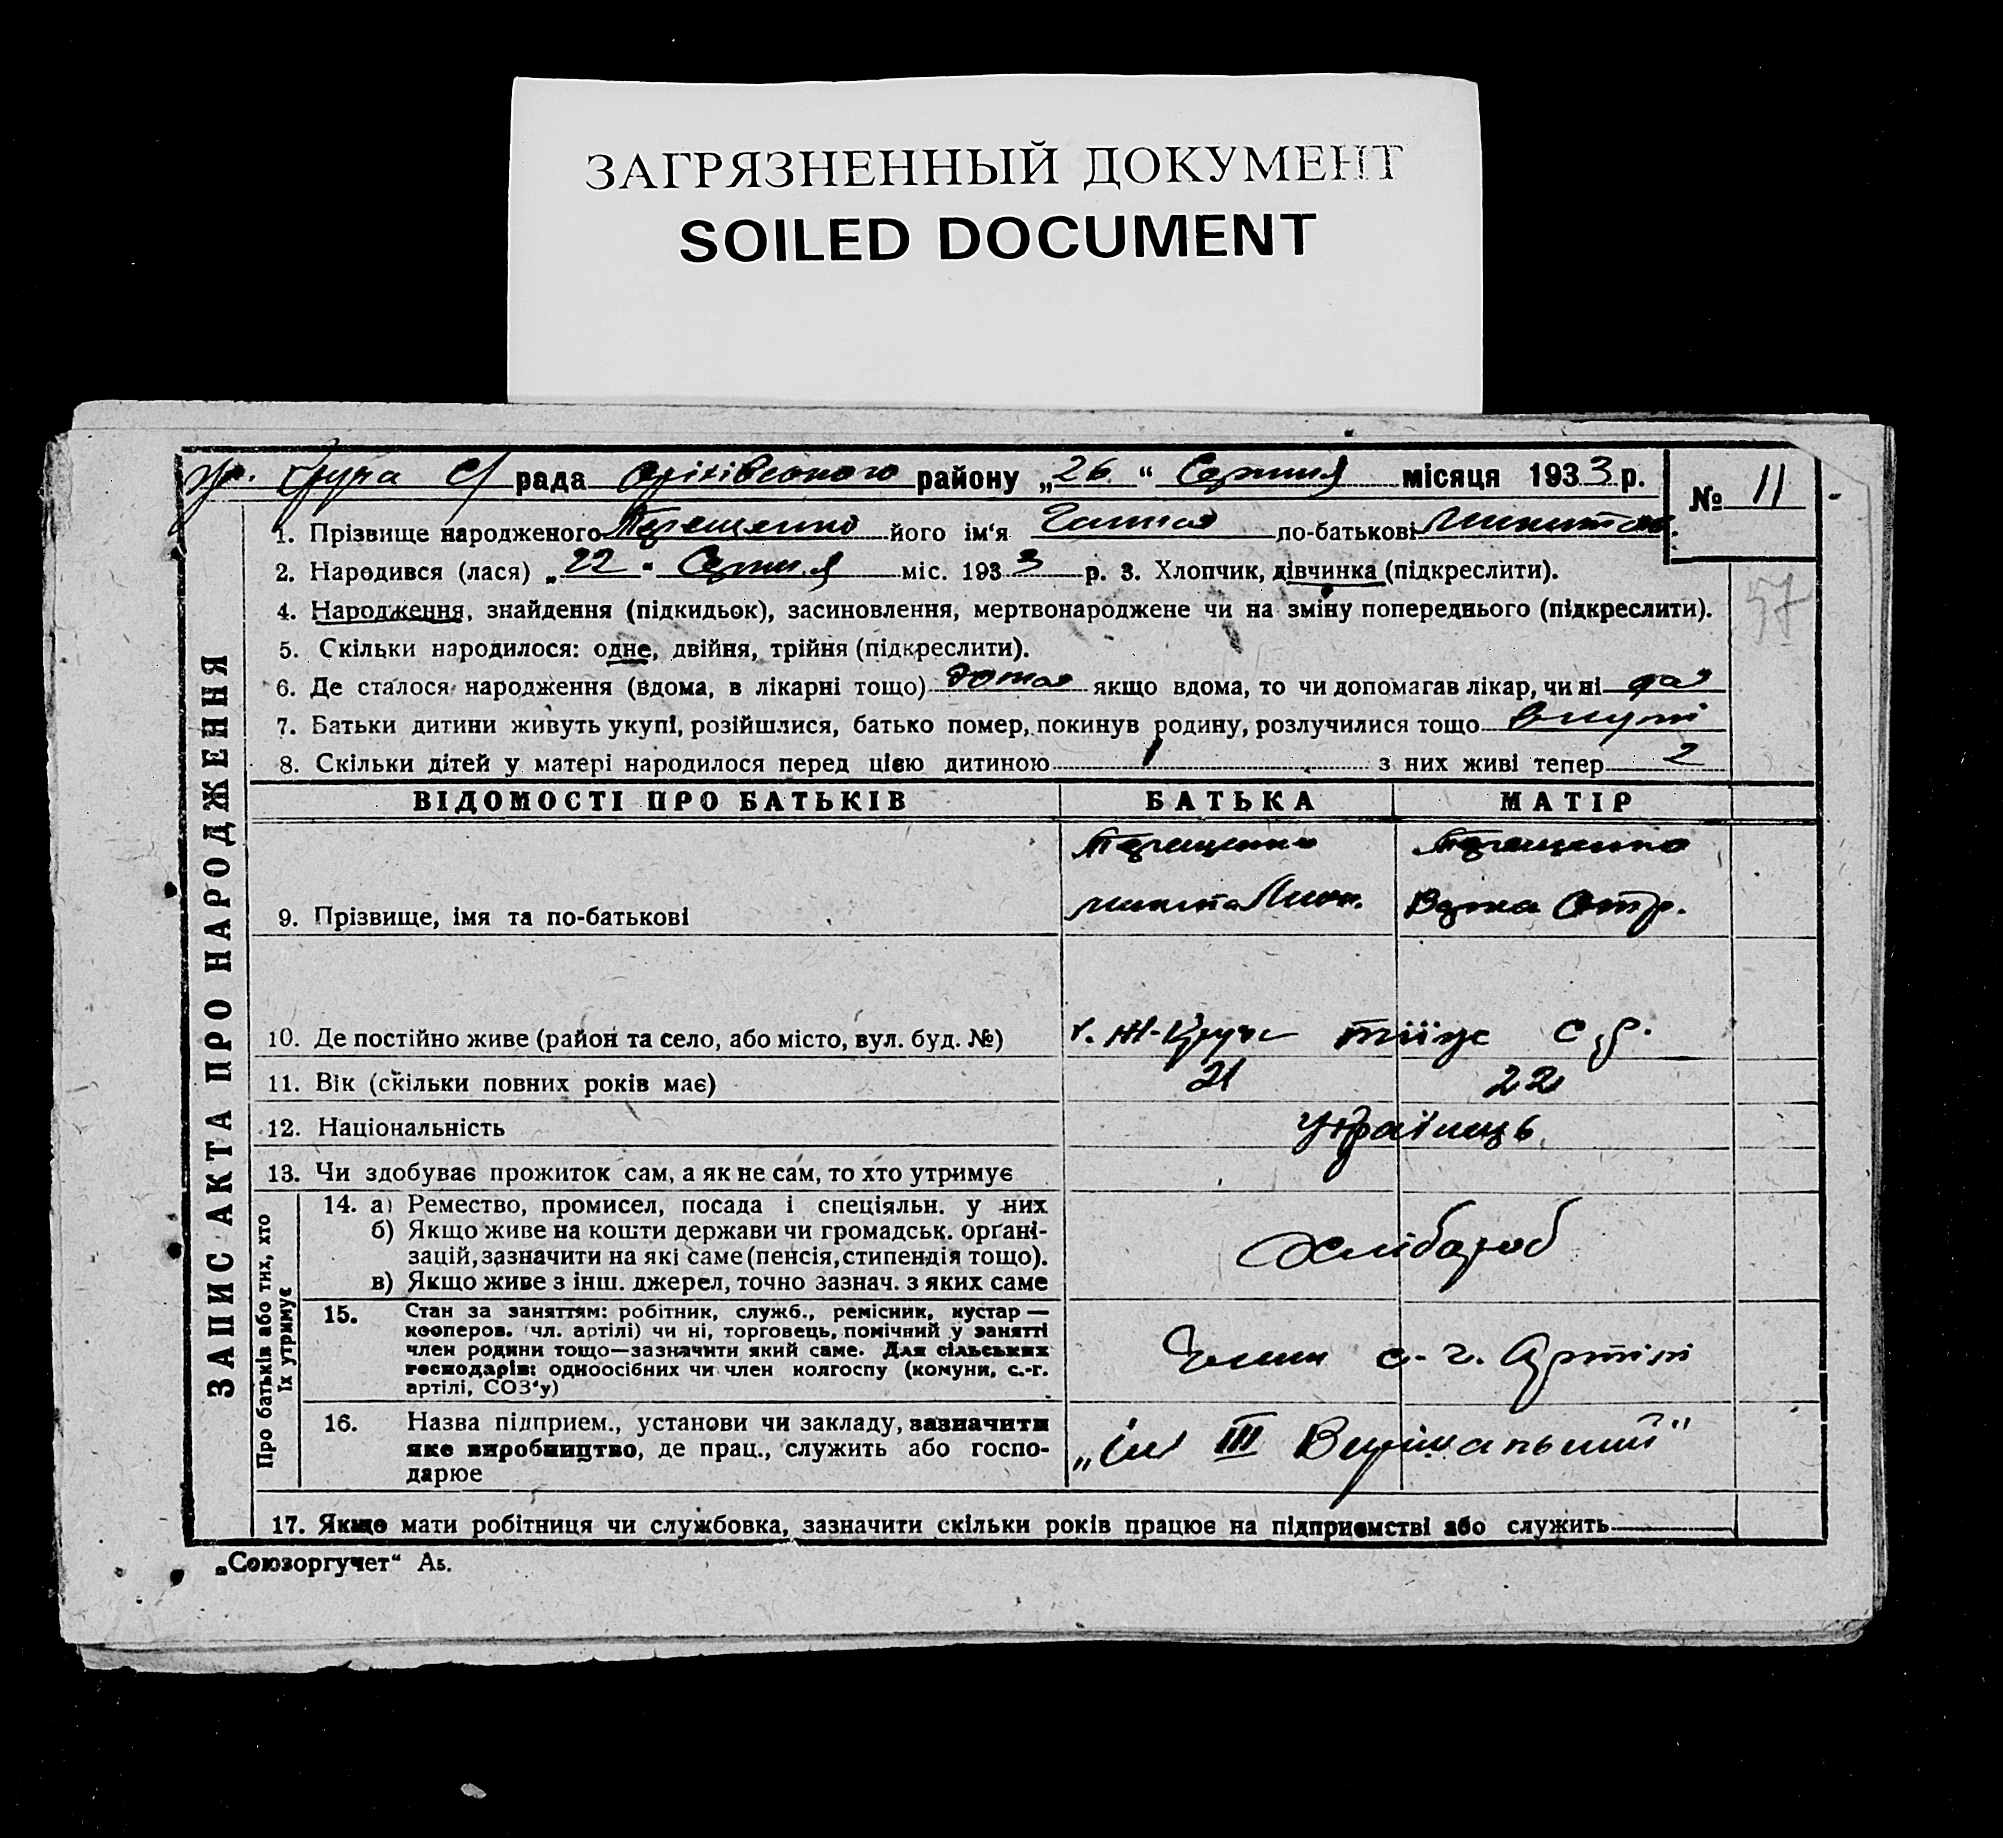 ЗАГРЯЗНЕННЫЙ ДОКУМЕНТ
SOILED DOCUMENT
рада Оріхівського району „26“ Серпня місяця 1933 р.
№ 11
1. Прізвище народженого Терещенко його ім‘я Ганна по-батькові Микит.
2. Народився (лася) „22“ Серпня міс. 1933 р. 3. Хлопчик, дівчинка (підкреслити).
57
4. Народження, знайдення (підкидьок), засиновлення, мертвонароджене чи на зміну попереднього (підкреслити).
5. Скільки народилося: одне, двійня, трійня (підкреслити).
6. Де сталося народження (вдома, в лікарні тощо) дома якщо вдома, то чи допомагав лікар, чи ні да
7. Батьки дитини живуть укупі, розійшлися, батько помер, покинув родину, розлучилися тощо вкупі
8. Скільки дітей у матері народилося перед цією дитиною 1 з них живі тепер 2
ВІДОМОСТІ ПРО БАТЬКІВ БАТЬКА МАТІР
Терещенко Терещенко
9. Прізвище, імя та по-батькові Микита
10. Де постійно живе (район та село, або місто, вул. буд. №)
11. Вік (скільки повних років має) 21 22
12. Національність Українець
13. Чи здобуває прожиток сам, а як не сам, то хто утримує
14. а) Ремество, промисел, посада і спеціяльн. у них
б) Якщо живе на кошти держави чи громадськ. орґані-
зацій, зазначити на які саме (пенсія, стипендія тощо).
в) Якщо живе з інш. джерел, точно зазнач. з яких саме
Хлібороб
15. Стан за заняттям: робітник, служб., ремісник, кустар —
кооперов. (чл. артілі) чи ні, торговець, помічний у занятті
член родини тощо—зазначити який саме. Для сільських
господарів: одноосібних чи член колгоспу (комуни, с.-г.
артілі, СОЗ‘у)
Член с.-г. Артілі
16. Назва підприєм., установи чи закладу, зазначити
яке виробництво, де прац., служить або госпо-
дарює
„ім III Вирішальний“
17. Якщо мати робітниця чи службовка, зазначити скільки років працює на підприємстві або служить
ЗАПИС АКТА ПРО НАРОДЖЕННЯ
Про батьків або тих, хто
їх утримує
„Союзоргучет“ А5.